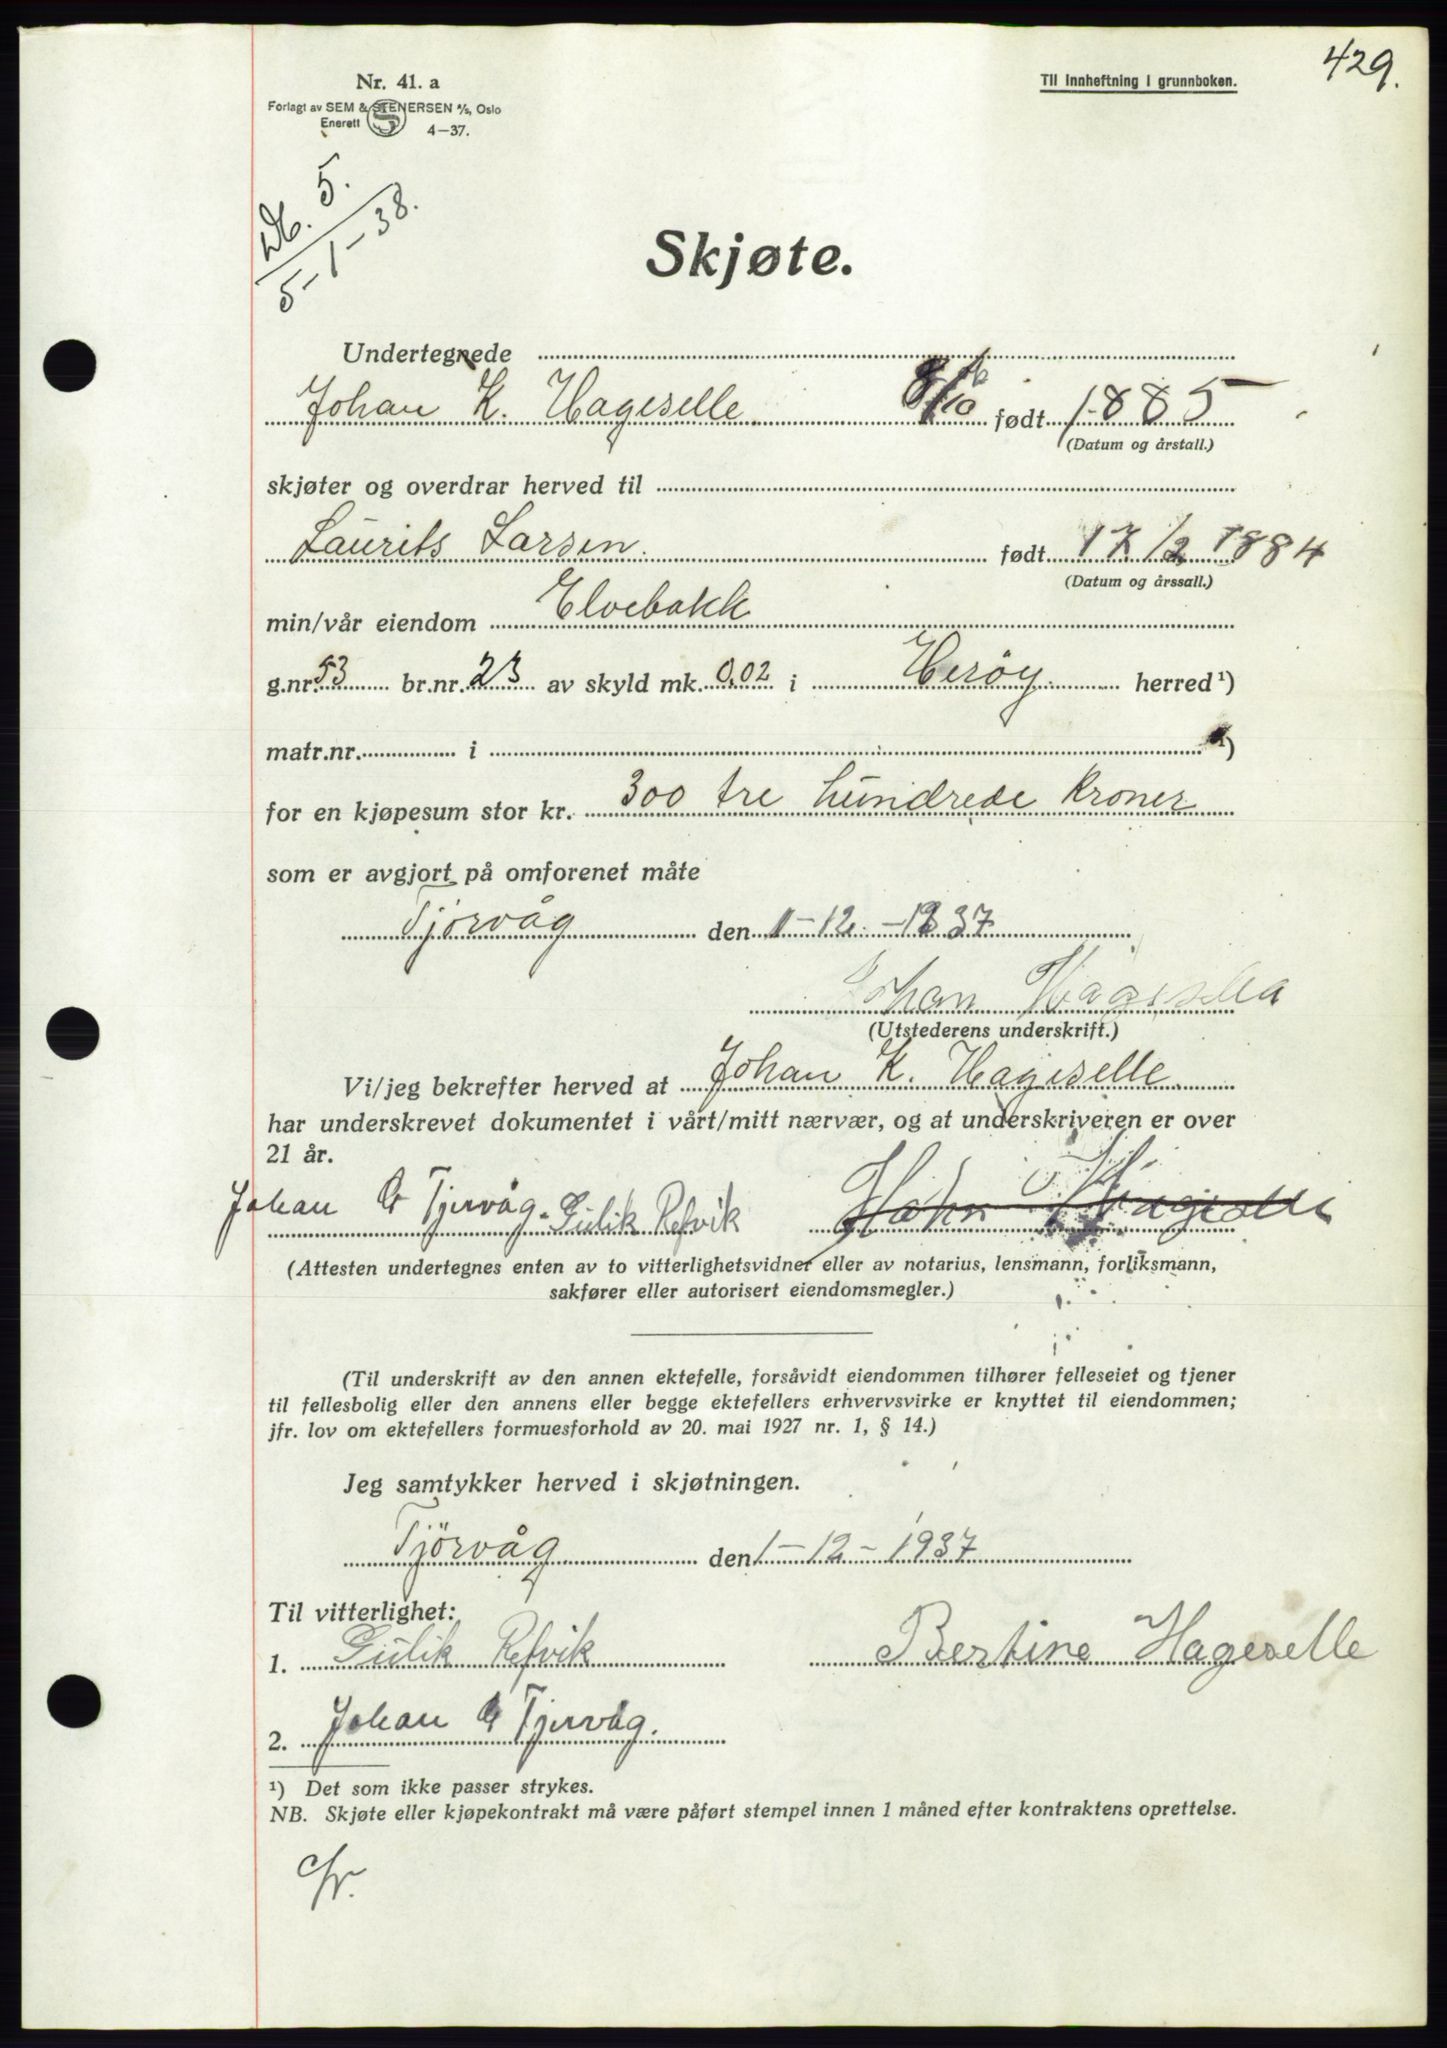 429.
Nr. 41. a
Til innheftning i grunnboken.
Forlagt av SEM & STENERSEN A/S, Oslo
Enerett
4—37.
Db. 5.
5-1-38.
Skjøte.
Undertegnede
Johan K. Hageselle 8/10 født 1885
(Datum og årstall.)
skjøter og overdrar herved til
Laurits Larsen. født 17/2 1884
(Datum og årssall.)
min/vår eiendom Elvebakk
g.nr. 53 br.nr. 23 av skyld mk. 0,02 i Herøy. herred ¹)
matr.nr. i ¹)
for en kjøpesum stor kr. 300 tre hundrede Kroner
som er avgjort på omforenet måte
Tjörvåg den 1-12-1937
Johan Hageselle
(Utstederens underskrift.)
Vi/jeg bekrefter herved at Johan K. Hageselle
har underskrevet dokumentet i vårt/mitt nærvær, og at underskriveren er over
21 år.
Johan G Tjervåg. Gulik Refvik
(Attesten undertegnes enten av to vitterlighetsvidner eller av notarius, lensmann, forliksmann,
sakfører eller autorisert eiendomsmegler.)
(Til underskrift av den annen ektefelle, forsåvidt eiendommen tilhører felleseiet og tjener
til fellesbolig eller den annens eller begge ektefellers erhvervsvirke er knyttet til eiendommen;
jfr. lov om ektefellers formuesforhold av 20. mai 1927 nr. 1, § 14.)
Jeg samtykker herved i skjøtningen.
Tjörvåg den 1-12-1937
Til vitterlighet:
1. Gulik Refvik Bertine Hageselle
2. Johan G Tjervåg.
¹) Det som ikke passer strykes.
NB. Skjøte eller kjøpekontrakt må være påført stempel innen 1 måned efter kontraktens oprettelse.